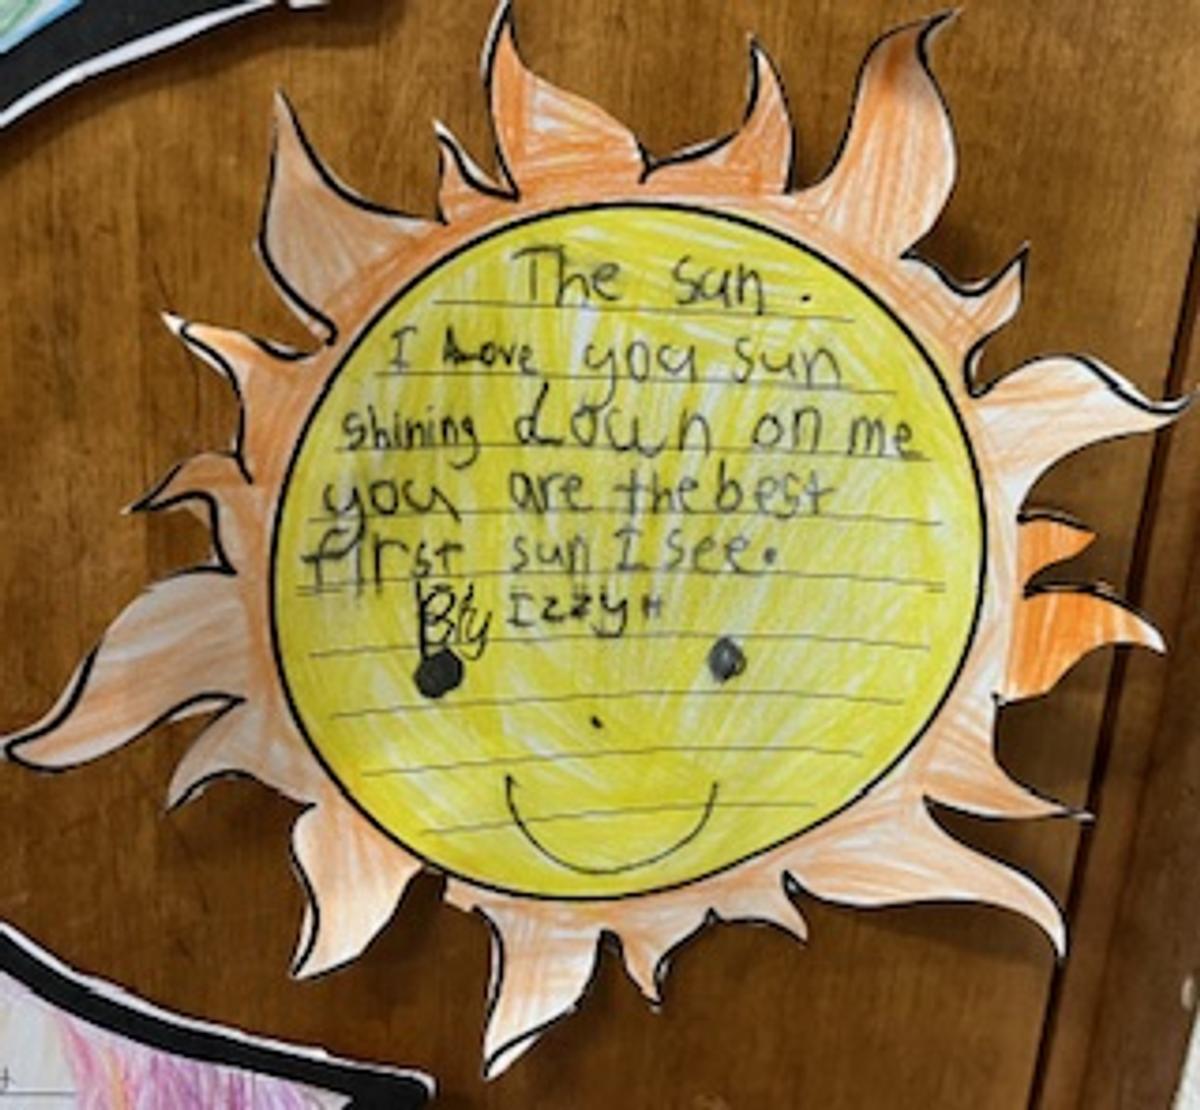 The sun.
I Love you sun
shining down on me
you are the best
first sun I see.
By Izzy H